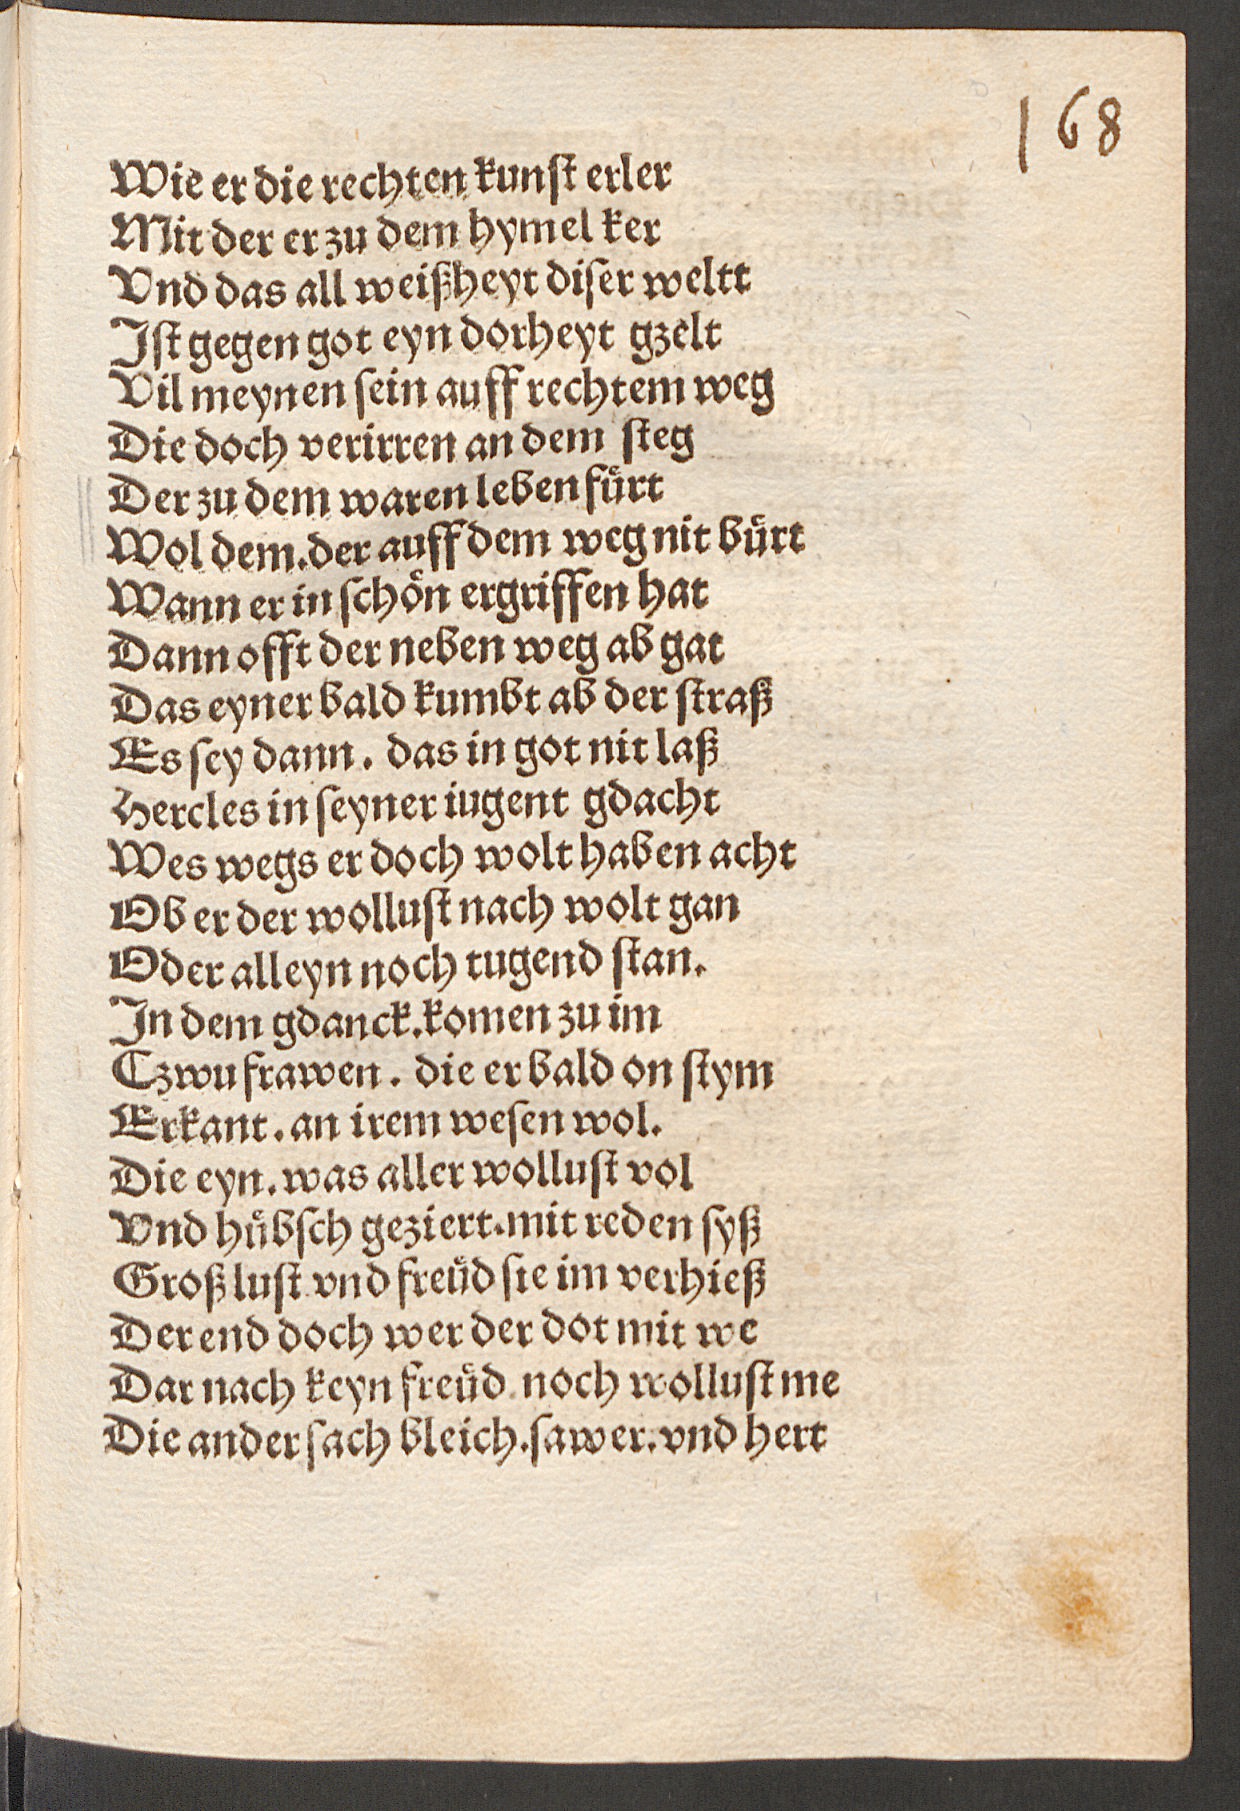 168
Wie er die rechten kunſt erler
Mit der er zu dem hymel ker
Vnd das all weißheyt diſer weltt
Iſt gegen got eyn dorheyt gzelt
Vil meynen ſein auff rechtem weg
Die doch verirren an dem ſteg
Der zu dem waren leben fuͤrt
Wol dem.der auff dem weg nit buͤrt
Wann er in ſchoͤn ergriffen hat
Dann offt der neben weg ab gat
Das eyner bald kumbt ab der ſtraß
Es ſey dann. das in got nit laß
Hercles in ſeyner iugent gdacht
Wes wegs er doch wolt haben acht
Ob er der wolluſt nach wolt gan
Oder alleyn noch tugend ſtan.
In dem gdanck.komen zu im
Czwu frawen. die er bald on ſtym
Erkant.an irem weſen wol.
Die eyn.was aller wolluſt vol
vnd huͤbſch geziert.mit reden ſyß
Groß luſt vnd freuͤd ſie im verhieß
Der end doch wer der dot mit we
Dar nach keyn freuͤd noch wolluſt me
Die ander ſach bleich.ſawer.vnd hert